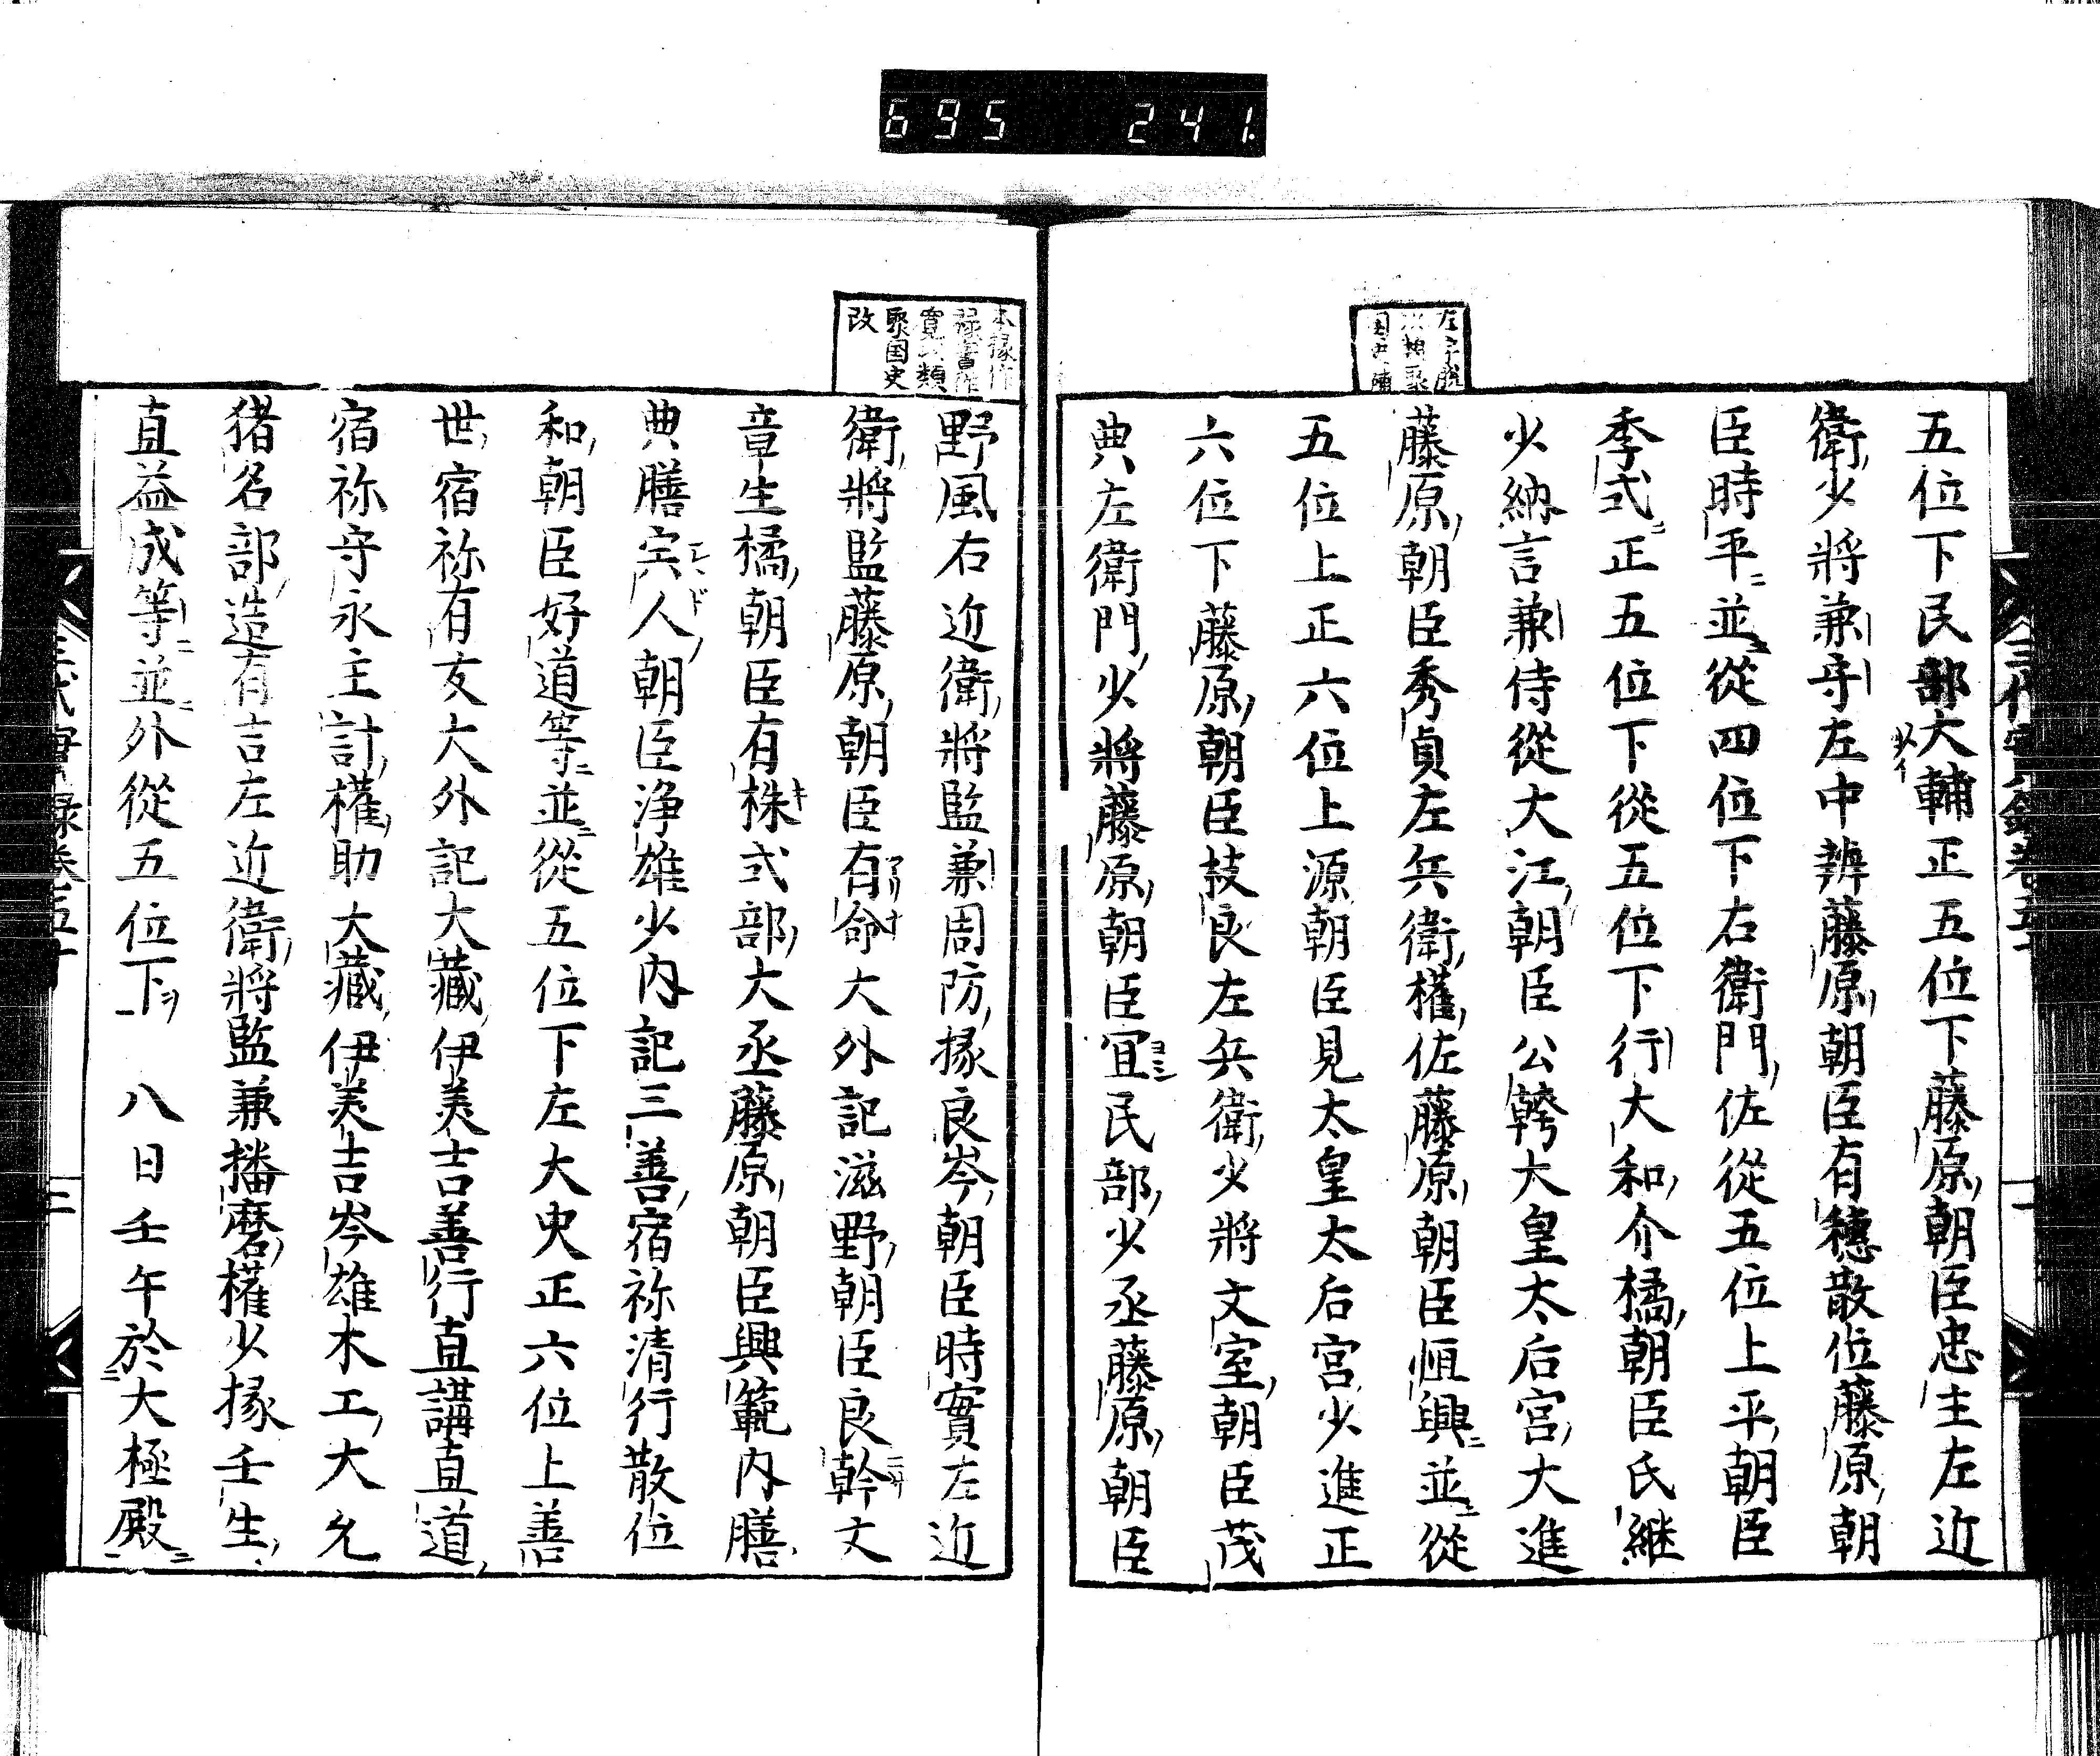 695 241.
左字脱
国史補
五位下民部大輔正五位下藤原朝臣忠主左近
少イ
衛少将兼守左中辨藤原朝臣有穗散位藤原朝
臣時平並從四位下右衛門佐從五位上平朝臣
季式正五位下從五位下行大和介橘朝臣氏継
少納言兼侍從大江朝臣公幹大皇太后宮大進
藤原朝臣秀貞左兵衛權佐藤原朝臣恒興並從
五位上正六位上源朝臣見太皇太后宮少進正
六位下藤原朝臣技良左兵衛少將文室朝臣茂
典左衛門少將藤原朝臣宜民部少丞藤原朝臣
本掾作
類
聚国史
改
野風右近衛將監兼周防掾良岑朝臣時實左近
衛將監藤原朝臣有命大外記滋野朝臣良幹文
章生橘朝臣有株式部大丞藤原朝臣興範内膳
典膳宍人朝臣浄雄少内記三善宿祢清行散位
和朝臣好道等並從五位下左大史正六位上善
世宿祢有友大外記大藏伊美吉善行直講直道
宿祢守永主計權助大藏伊美吉岑雄木工大允
猪名部造有吉左近衛將監兼播磨權少掾壬生
直益成等並外從五位下 八日壬午於大極殿
三代實録卷五十 二